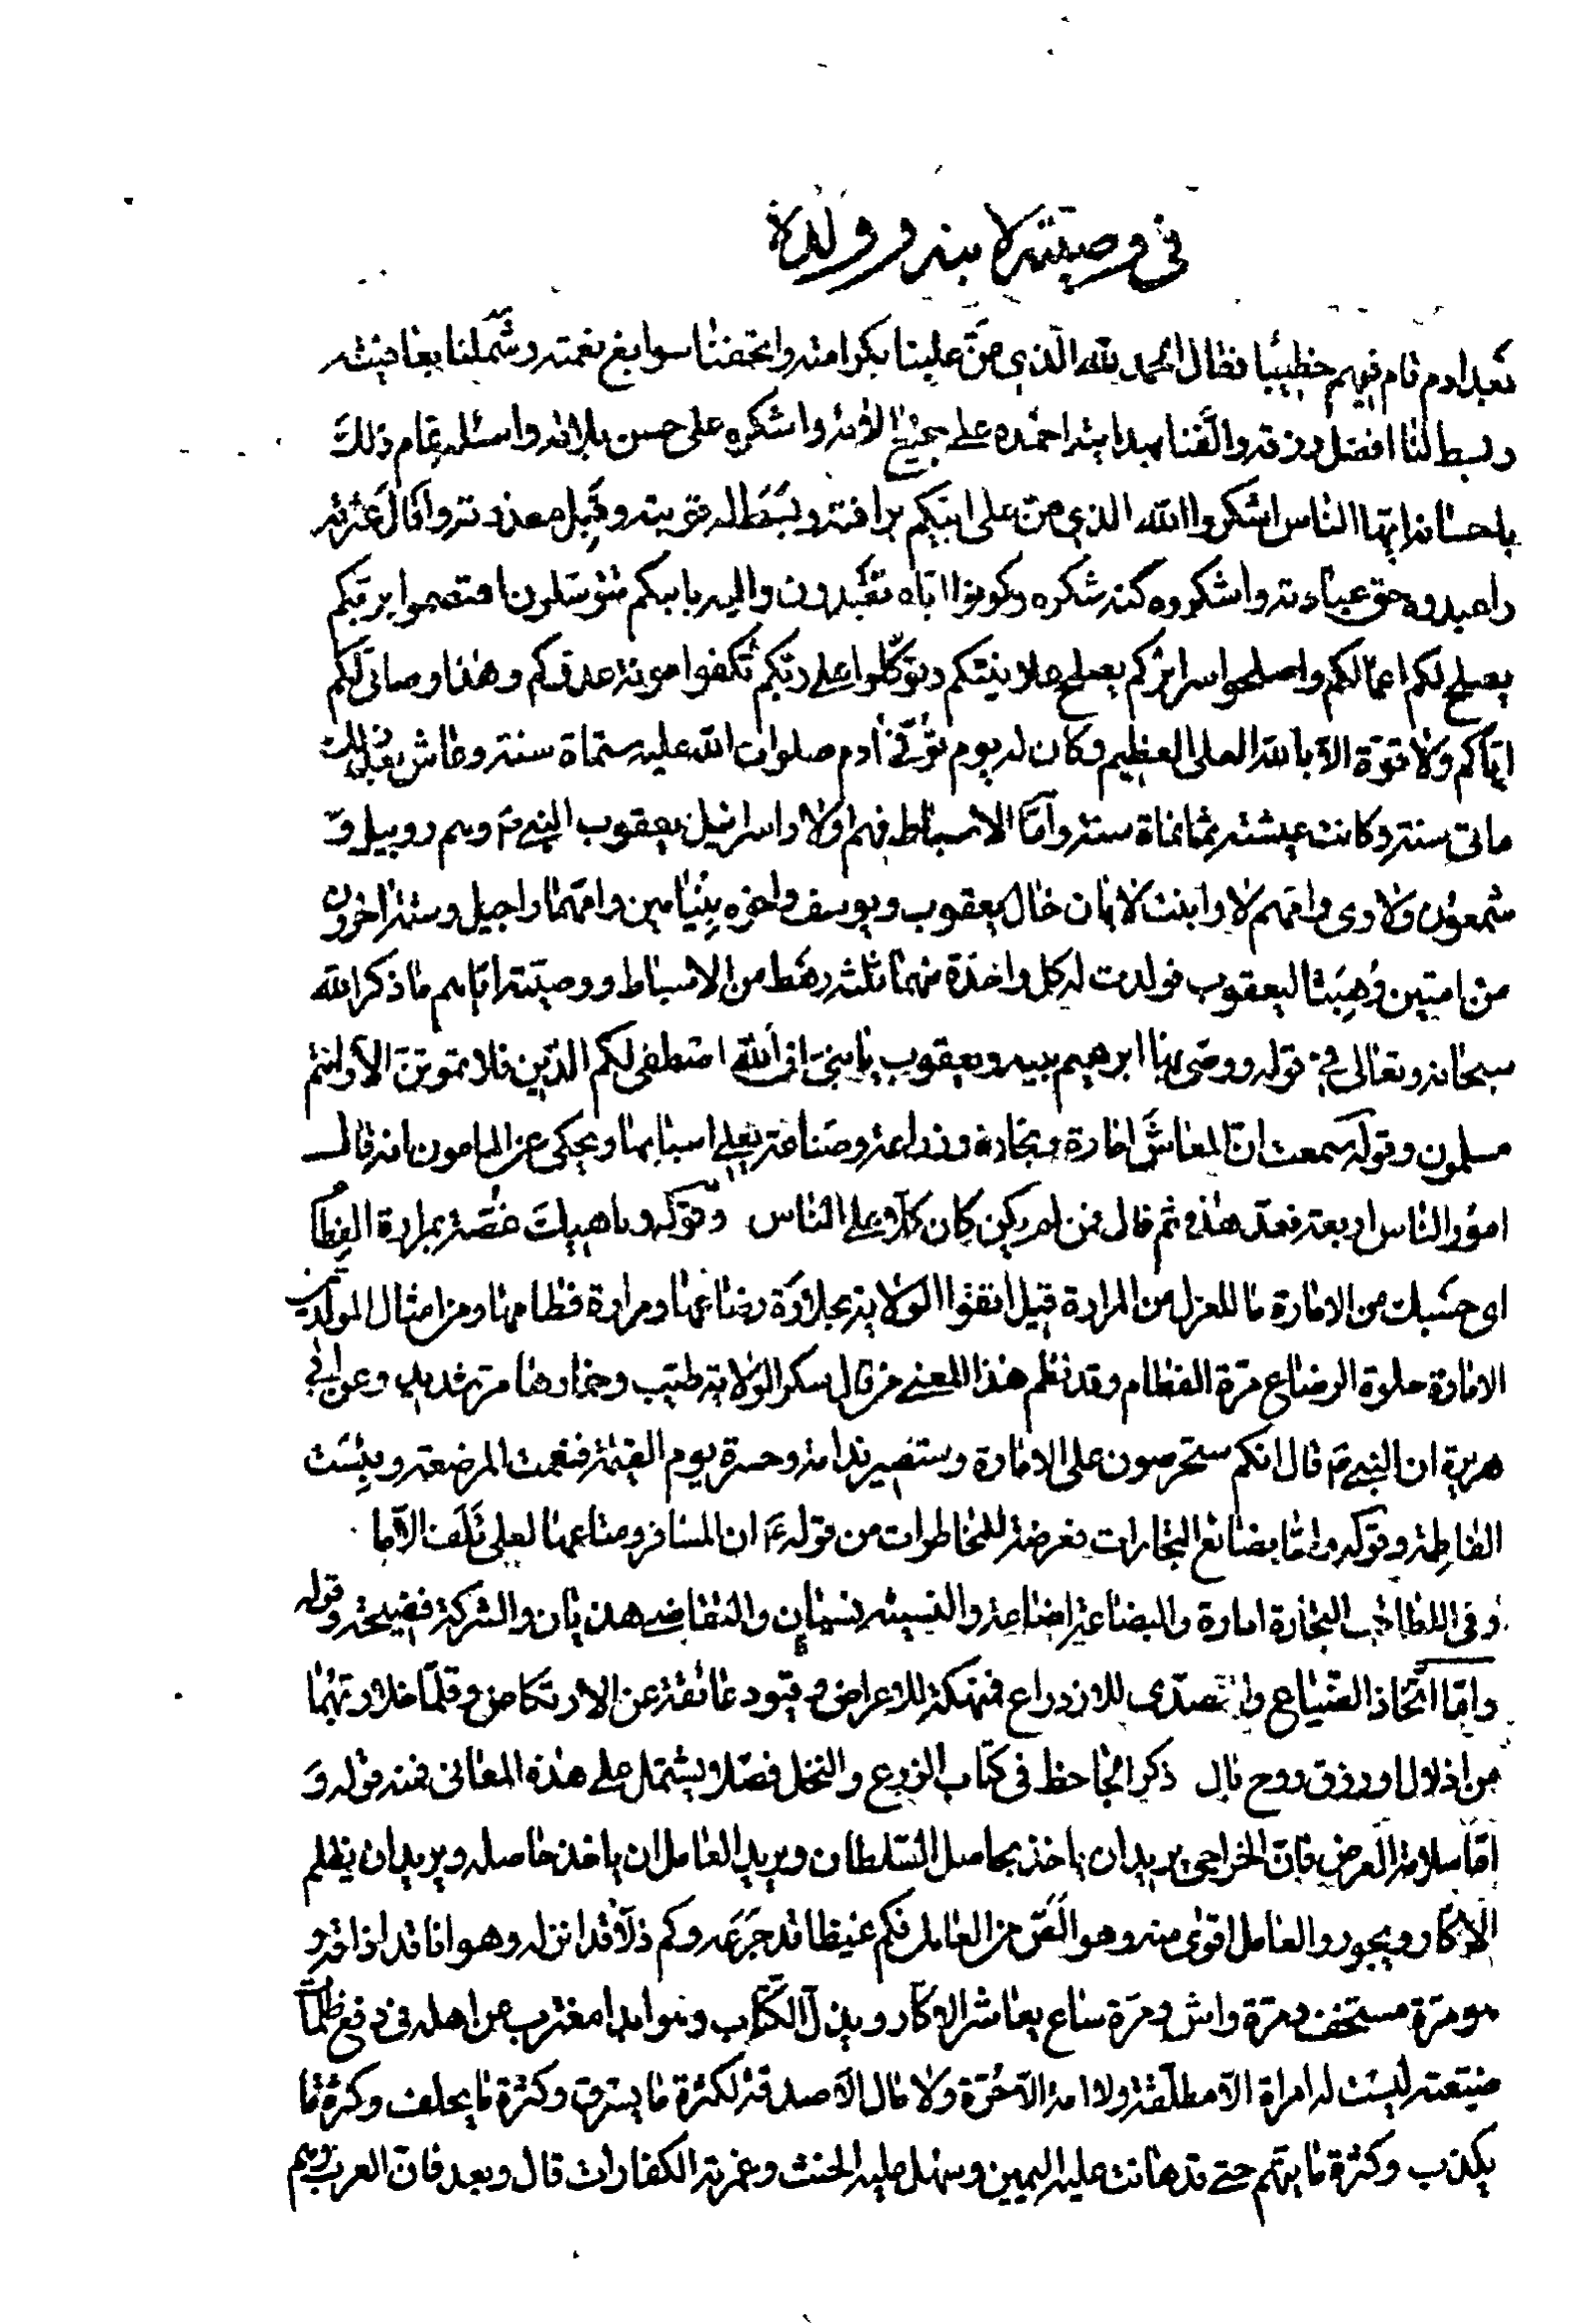 في وصيته لابنه وولده
بعد ادم قام فيهم خطيبًا فقال الحمد لله الّذي منّ علينا بكرامته واتحفنا سوابغ نعمته وشملنا بعافيته
وبسط لنا افضل رزقه والّفنا بهدايته احمده على جميع الائه واشكره على حسن بلائه واسئله تمام ذلك
باحسانه ايّها الناس اشكروا الله الذي منّ على ابيكم برافته وبسط له توبته وقَبِل معذرته واقال عثرته
واعبدوه حق عبادته واشكروه كنه شكره وكونوا ايّاه تعبدون واليه بابيكم متوسّلون اعتصموا بربّكم
يصلح لكم اعمالكم واصلحوا سرائركم يصلح علانيتكم وتوكّلوا على ربّكم تُكفوا مونة عدوّكم وهذا وصاتى لكم
ايّاكم ولا قوّة الّا بالله العلى العظيم وكان له يوم تُوُفّى ادم صلوات الله عليه ستماة سنة وعاش بعد ذلك
ماتى سنة وكانت عيشته ثمانماة سنة وامّا الاسباط فهم اولاد اسرائيل يعقوب النبي ع وهم روبيل و
شمعون ولاوى وامّهم لاوا بنت لابان خال يعقوب ويوسف واخوه بنيامين وامّهما راجيل وستة اخرون
من امتين وُهِبَتا ليعقوب فولدت له كل واحدة منهما ثلثة رهط من الاسباط ووصيّته ايّاهم ما ذكر الله
سبحانه وتعالى في قوله ووصّى بها ابرهيم بنيه ويعقوب يا بنيّ ان الله اصطفى لكم الدّين فلا تموتنّ الّا وانتم
مسلمون وقوله سمعت انّ المعاش امارة وتجارة وزراعة وصناعة يعلي اسبابها ويحكى عن المامون انه قال
امور الناس اربعة فعدّ هذه ثم قال فمن لم يكن كان كلّا على الناس وقوله وناهيك غصّة بمرارة الفطام
اى حسبك من الامارة ما للعزل من المرارة قيل اتقوا الولاية بحلاوة رضاعها ومرارة فطامها ومن امثال المولّدين
الامارة حلوة الرضاع مرّة الفطام وقد نظم هذا المعنى من قال سكر الولاية طيّب وخمارها مرّ شديد وعن ابي
هريرة ان النبي ع قال انكم ستحرصون على الامارة وستصير ندامة وحسرة يوم القيمة فنعمت المرضعة وبئست
الفاطمة وقوله وامّا بضائع التجارات فعرضة للمخاطرات من قوله ع ان المسافر ومتاعها لعلى تلف الّا ما
وقى الله التجارة امارة والبضاعة اضاعة والنسيئة نسيان والتقاضي هذيان والشركة فضيحة وقوله
وامّا اتّخاذ الضّياع والتّصدّى للازدراع فمنهكة للاعراض وقيود عائقة عن الارتكاض وقلّما خلا ربّها
من اذلال ورزق روح بال ذكر الجاحظ فى كتاب الزرع والنخل فصلا يشتمل على هذه المعانى فمنه قوله و
امّا سلامة العرض فانّ الخراجى يريد ان ياخذ بحاصل السّلطان ويريد العامل ان ياخذ حاصله ويريد ان يظلم
الاكّار ويجور والعامل اقوى منه وهو العن من العامل فكم غيظا قد جرّعه وكم ذلّا قد انزله وهوانا قد اذاقه و
هو مرّة مستخف ومرّة واش ومرّة ساع يعاشر الاكّار ويبذل الكتّاب وهو ابدا مغترب عن اهله فى دفع ظلم
ضيعته ليست له امراة الّا مطلّقة ولا امة الّا حرّة ولا مال الّا صدقة لكثرة ما يسترق وكثرة ما يحلف وكثرة ما
يكذب وكثرة ما يتهم حتى قد هانت عليه اليمين وسهل عليه الحنث وعزبة الكفارات قال وبعد فان العرب وهم